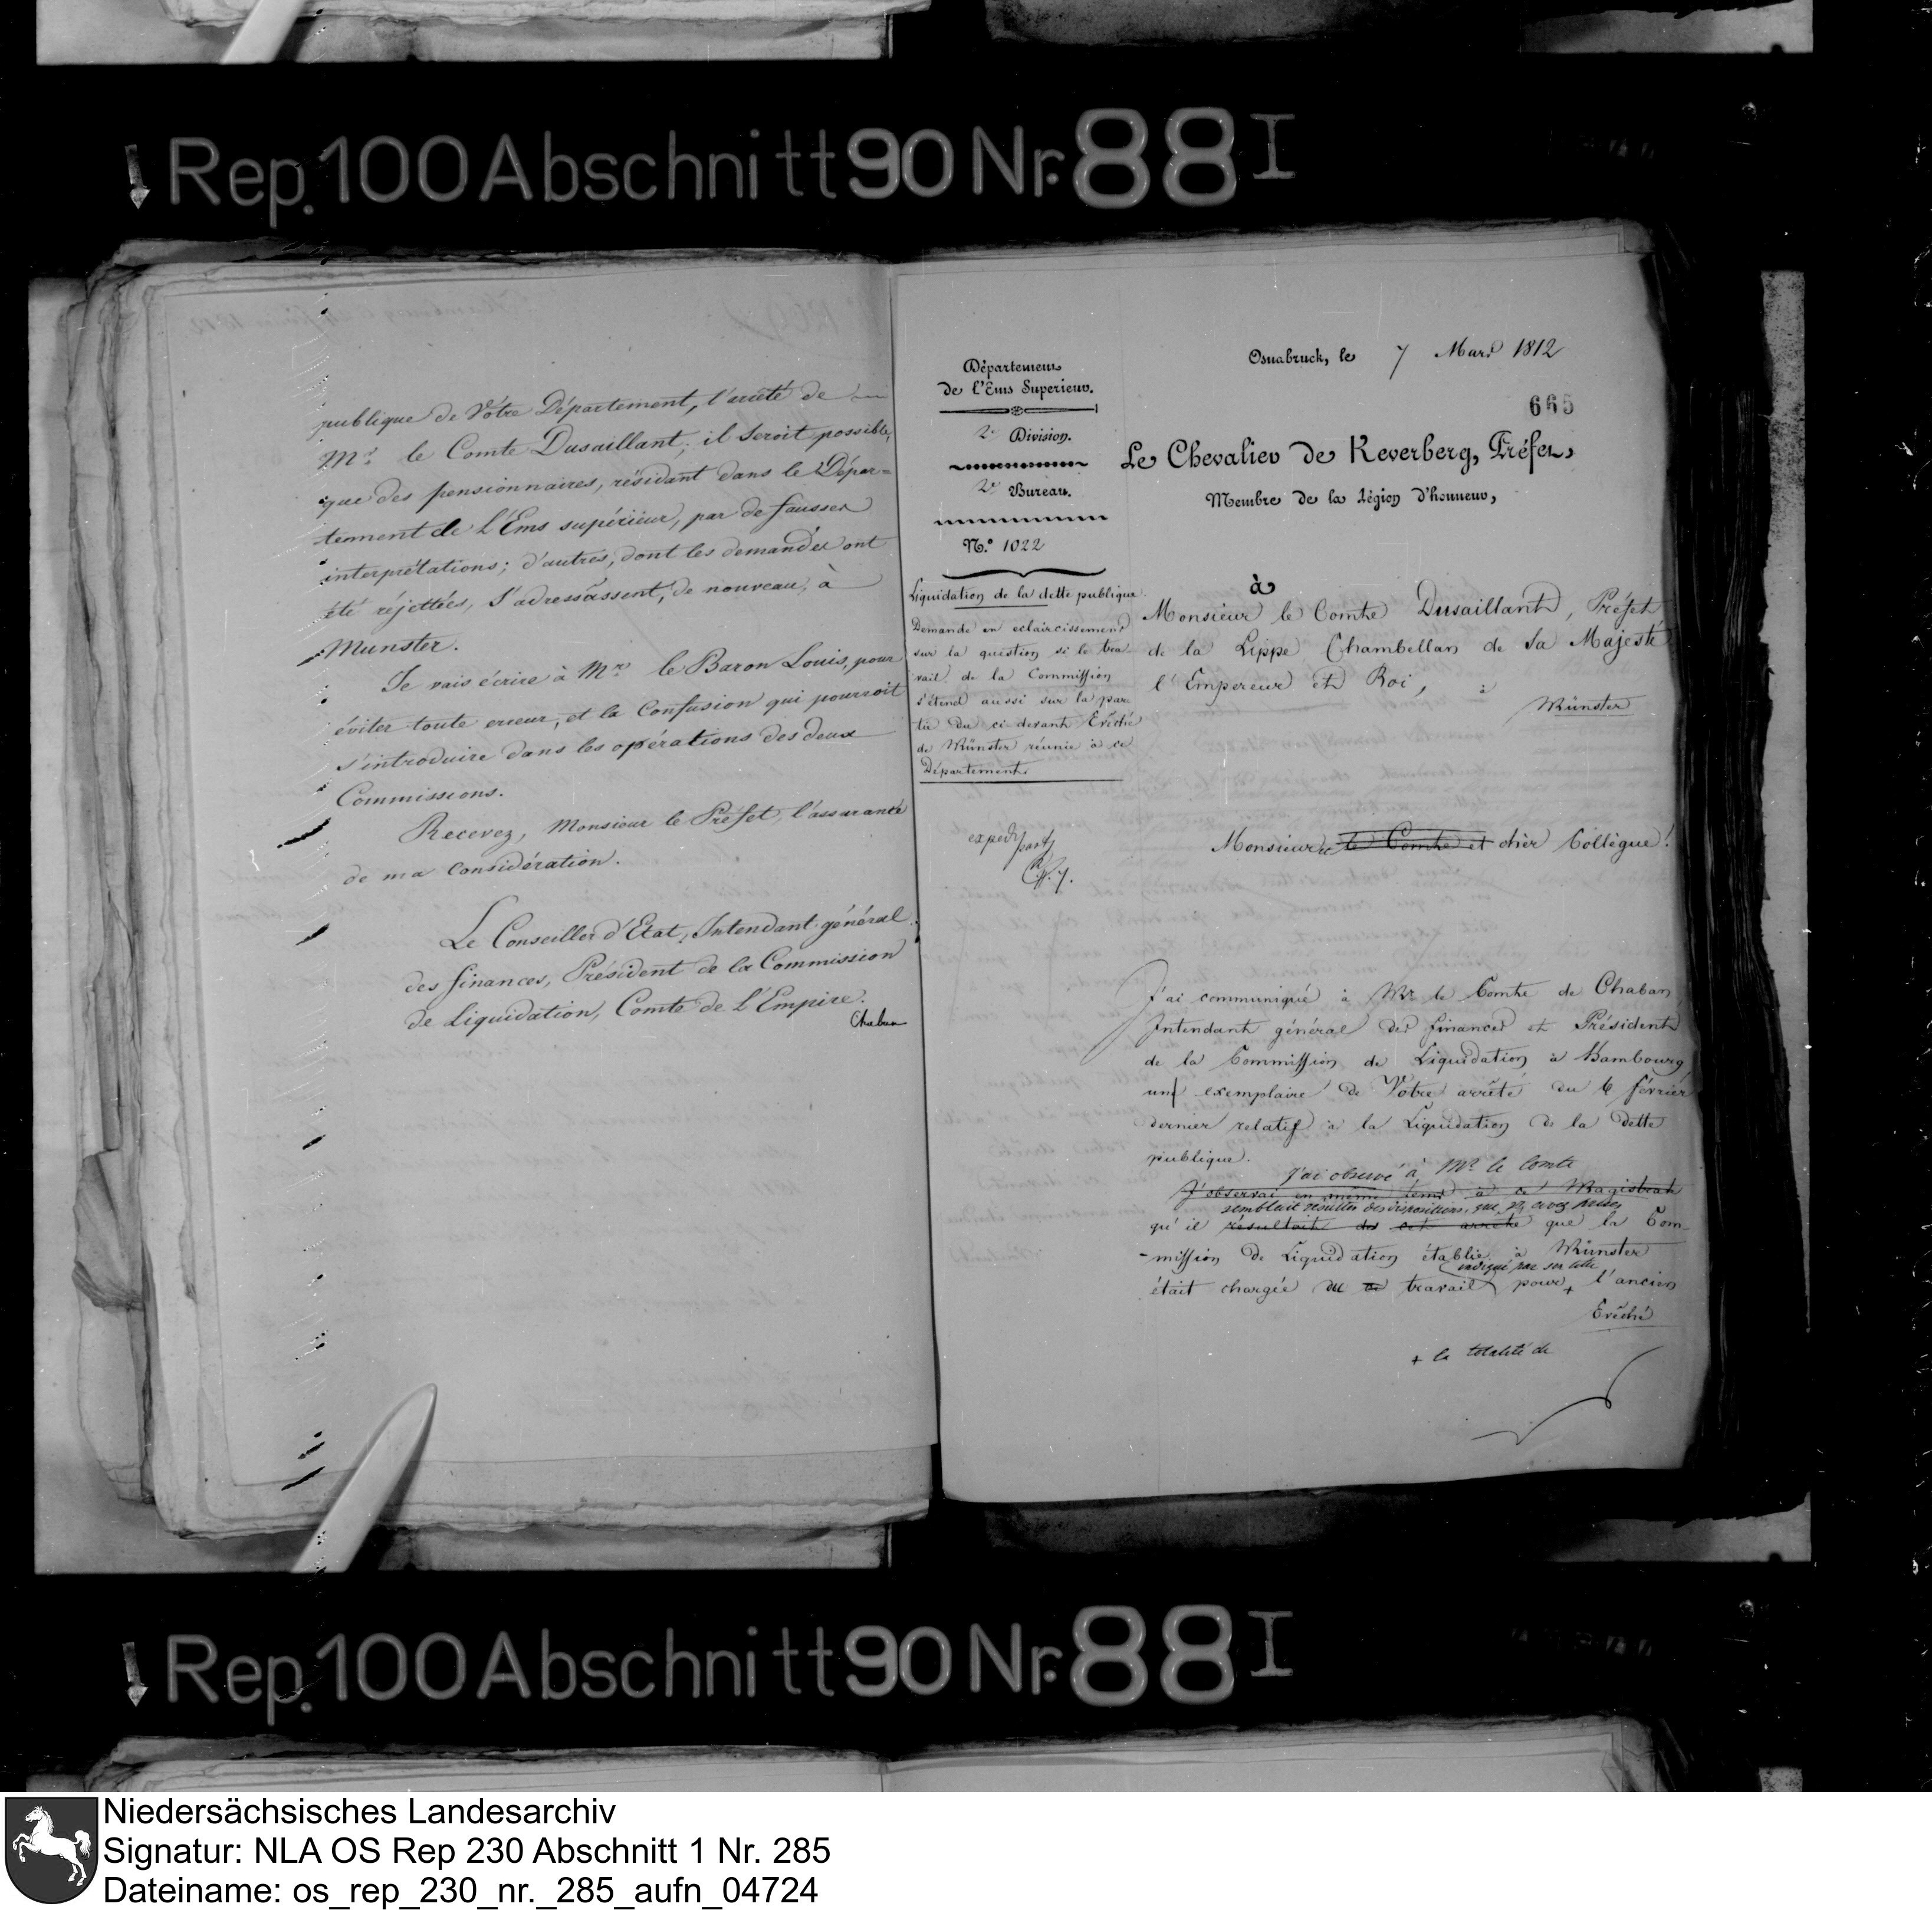 Rep. 100 Abschnitt 90 Nr. 88 I
publique de Vôtre Département, l'arrêté de
Mr. le Comte Dusaillant; il seroit possible,
que des pensionnaires, résidant dans le Dépar=
tement de L'Ems supérieur, par de fausses
interprétations; d'autres, dont les demandes ont
été réjettées, s'adressassent, de nouveau, à
Munster.
Je vais écrire à Mr. le Baron Louis, pour
éviter toute erreur, et la Confusion qui pourroit
s'introduire dans les opérations des deux
Commissions.
Recevez, Monsieur le Préfet, l'assurance
de ma considération.
Le Conseiller d'Etat, Intendant général
des finances, Président de la Commission
de Liquidation, Comte de l'Empire.
Chaban
Département
de l'Ems Superieur.
2e Division.
2e Bureau.
N.° 1022
Liquidation de la dette publique.
Demande en eclaircissement
sur la question si le tra-
vail de la Commission
s'étend aussi sur la par
tie du ci-devant Evêché
de Münster réunie à ce
Département.
Osnabruck, le 7 Mars 1812
665
Le Chevalier de Keverberg, Préfet,
Membre de la Légion d'honneur,
à
Monsieur le Comte Dusaillant, Préfet
de la Lippe, Chambellan de Sa Majesté
l'Empereur et Roi, à
Münster
Monsieur et le Comte et chèr Collègue!
J'ai communiqué à Mr le Comte de Chaban,
Intendant général des finances et Président
de la Commission de Liquidation à Hambourg,
un exemplaire de Votre arrêté du 6 février
dernier relatif à la Liquidation de la dette
publique.
j'ai observé à Mr. le Comte
J'observai en même tems à ce Magistrat
semblait résulter des dispositions, que vs avez prises,
qu'il résultait de cet arrêté que la Com
-mission de Liquidation établie à Münster
indiqué par son titre
était chargée du ce travail pour + l'ancien
Evêché
+ la totalité de
Rep. 100 Abschnitt 90 Nr. 88 I
Niedersächsisches Landesarchiv
Signatur: NLA OS Rep 230 Abschnitt 1 Nr. 285
Dateiname: os_rep_230_nr._285_aufn_04724